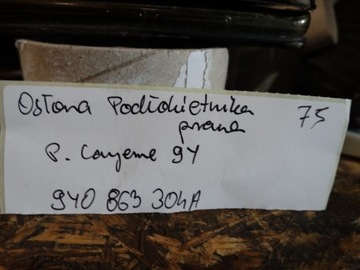 Osłona Podłokietnika 75
prawa
P. Cayenne 9Y
9Y0 863 304A